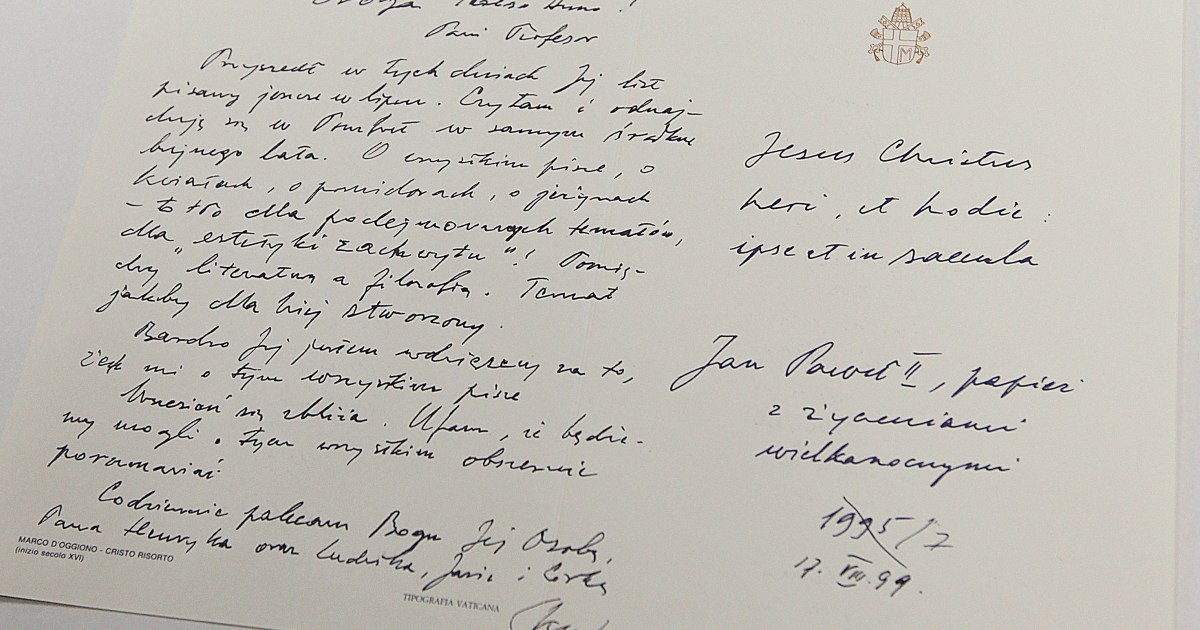 Pani Profesor
Przyszedł w tych dniach Jej list
pisany jeszcze w lipcu. Czytam i odnaj-
duję się w Pomfret w samym środku
bujnego lata. O wszystkim pisze, o
kwiatach, o pomidorach, o jeżynach
- to tło dla podejmowanych tematów,
dla „estetyki zachwytu"! Pomię-
dzy "literaturą a filozofią. Temat
jakby dla Niej stworzony.
Bardzo Jej jestem wdzięczny za to,
że mi o tym wszystkim pisze
Wrzesień się zbliża. Ufam, że będzie-
my mogli o tym wszystkim obszernie
porozmawiać
Codziennie polecam Bogu Jej Osobę,
Pana Henryka oraz Ludwika, Jasia i Córkę
MARCO D'OGGIONO - CRISTO RISORTO
(inizio secolo XVI)
TIPOGRAFIA VATICANA
M
Jesus Christus
heri, et hodie:
ipse et in saecula
Jan Paweł II, papież
z życzeniami
wielkanocnymi
1995/7
17. VIII. 99.